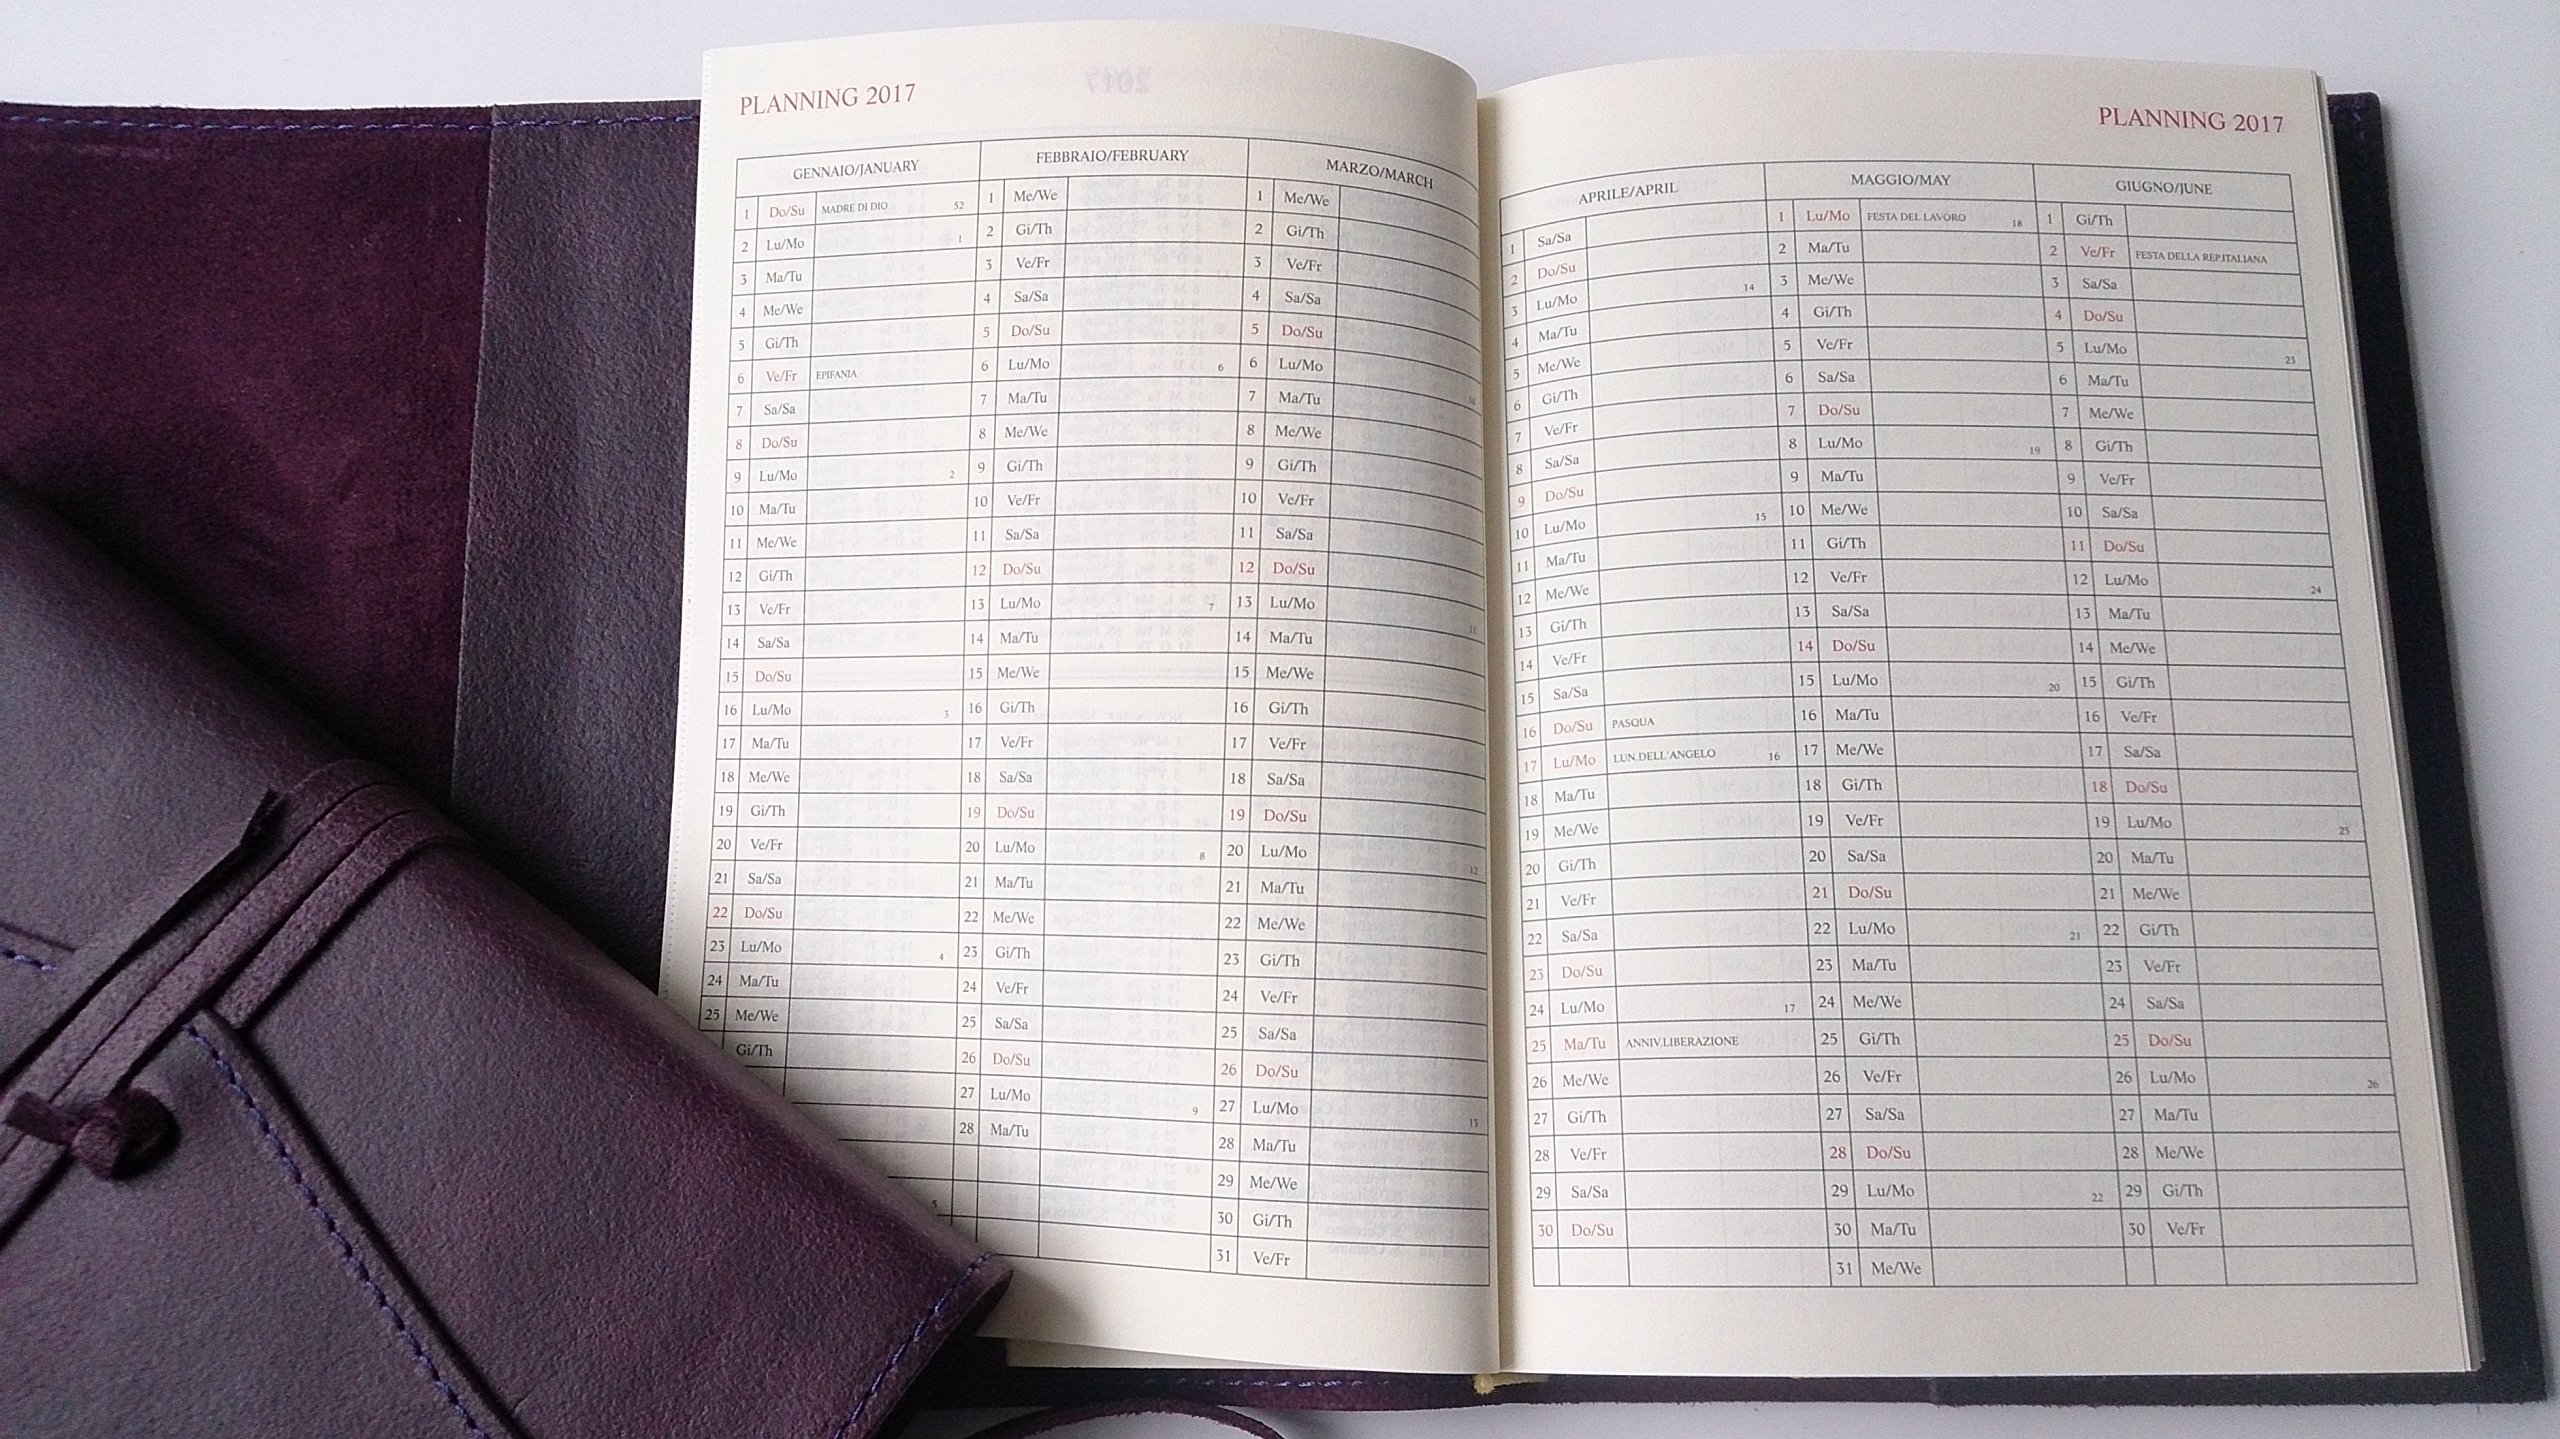 PLANNING 2017
GENNAIO/JANUARY FEBBRAIO/FEBRUARY MARZO/MARCH
1 Do/Su MADRE DI DIO 52 1 Me/We 1 Me/We
2 Lu/Mo 1 2 Gi/Th 2 Gi/Th
3 Ma/Tu 3 Ve/Fr 3 Ve/Fr
4 Me/We 4 Sa/Sa 4 Sa/Sa
5 Gi/Th 5 Do/Su 5 Do/Su
6 Ve/Fr EPIFANIA 6 Lu/Mo 6 6 Lu/Mo
7 Sa/Sa 7 Ma/Tu 7 Ma/Tu 10
8 Do/Su 8 Me/We 8 Me/We
9 Lu/Mo 2 9 Gi/Th 9 Gi/Th
10 Ma/Tu 10 Ve/Fr 10 Ve/Fr
11 Me/We 11 Sa/Sa 11 Sa/Sa
12 Gi/Th 12 Do/Su 12 Do/Su
13 Ve/Fr 13 Lu/Mo 7 13 Lu/Mo 11
14 Sa/Sa 14 Ma/Tu 14 Ma/Tu
15 Do/Su 15 Me/We 15 Me/We
16 Lu/Mo 3 16 Gi/Th 16 Gi/Th
17 Ma/Tu 17 Ve/Fr 17 Ve/Fr
18 Me/We 18 Sa/Sa 18 Sa/Sa
19 Gi/Th 19 Do/Su 19 Do/Su
20 Ve/Fr 20 Lu/Mo 8 20 Lu/Mo 12
21 Sa/Sa 21 Ma/Tu 21 Ma/Tu
22 Do/Su 22 Me/We 22 Me/We
23 Lu/Mo 4 23 Gi/Th 23 Gi/Th
24 Ma/Tu 24 Ve/Fr 24 Ve/Fr
25 Me/We 25 Sa/Sa 25 Sa/Sa
Gi/Th 26 Do/Su 26 Do/Su
27 Lu/Mo 9 27 Lu/Mo 13
28 Ma/Tu 28 Ma/Tu
29 Me/We
5 30 Gi/Th
31 Ve/Fr
PLANNING 2017
APRILE/APRIL MAGGIO/MAY GIUGNO/JUNE
1 Sa/Sa 1 Lu/Mo FESTA DEL LAVORO 18 1 Gi/Th
2 Do/Su 2 Ma/Tu 2 Ve/Fr FESTA DELLA REP.ITALIANA
3 Lu/Mo 14 3 Me/We 3 Sa/Sa
4 Ma/Tu 4 Gi/Th 4 Do/Su
5 Me/We 5 Ve/Fr 5 Lu/Mo 23
6 Gi/Th 6 Sa/Sa 6 Ma/Tu
7 Ve/Fr 7 Do/Su 7 Me/We
8 Sa/Sa 8 Lu/Mo 19 8 Gi/Th
9 Do/Su 9 Ma/Tu 9 Ve/Fr
10 Lu/Mo 15 10 Me/We 10 Sa/Sa
11 Ma/Tu 11 Gi/Th 11 Do/Su
12 Me/We 12 Ve/Fr 12 Lu/Mo 24
13 Gi/Th 13 Sa/Sa 13 Ma/Tu
14 Ve/Fr 14 Do/Su 14 Me/We
15 Sa/Sa 15 Lu/Mo 20 15 Gi/Th
16 Do/Su PASQUA 16 Ma/Tu 16 Ve/Fr
17 Lu/Mo LUN.DELL'ANGELO 16 17 Me/We 17 Sa/Sa
18 Ma/Tu 18 Gi/Th 18 Do/Su
19 Me/We 19 Ve/Fr 19 Lu/Mo 25
20 Gi/Th 20 Sa/Sa 20 Ma/Tu
21 Ve/Fr 21 Do/Su 21 Me/We
22 Sa/Sa 22 Lu/Mo 21 22 Gi/Th
23 Do/Su 23 Ma/Tu 23 Ve/Fr
24 Lu/Mo 17 24 Me/We 24 Sa/Sa
25 Ma/Tu ANNIV.LIBERAZIONE 25 Gi/Th 25 Do/Su
26 Me/We 26 Ve/Fr 26 Lu/Mo 26
27 Gi/Th 27 Sa/Sa 27 Ma/Tu
28 Ve/Fr 28 Do/Su 28 Me/We
29 Sa/Sa 29 Lu/Mo 22 29 Gi/Th
30 Do/Su 30 Ma/Tu 30 Ve/Fr
31 Me/We